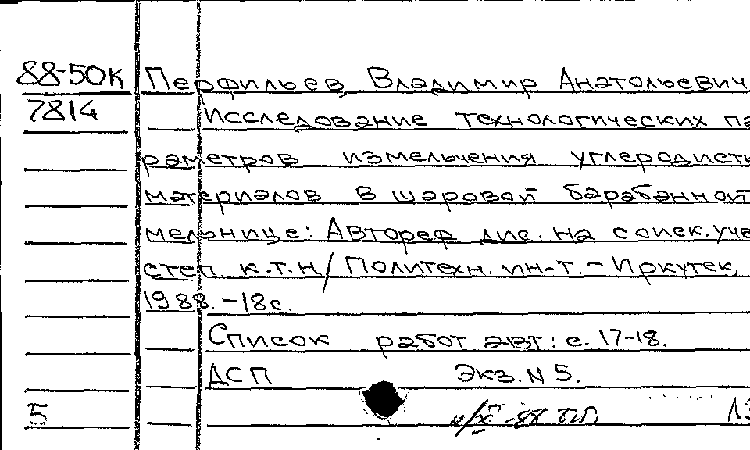 88-50к Перфильев Владимир Анатольевич
7814 Исследование технологических па
раметров измельчения углеродисты
материалов в шаровой барабанной
мельнице: Автореф. дис. на соиск. уче
степ. к.т.н/ Политехн. ин-т. - Иркутск,
1988. - 18с.
Список работ авт: с. 17-18.
ДСП Экз. N 5.
5